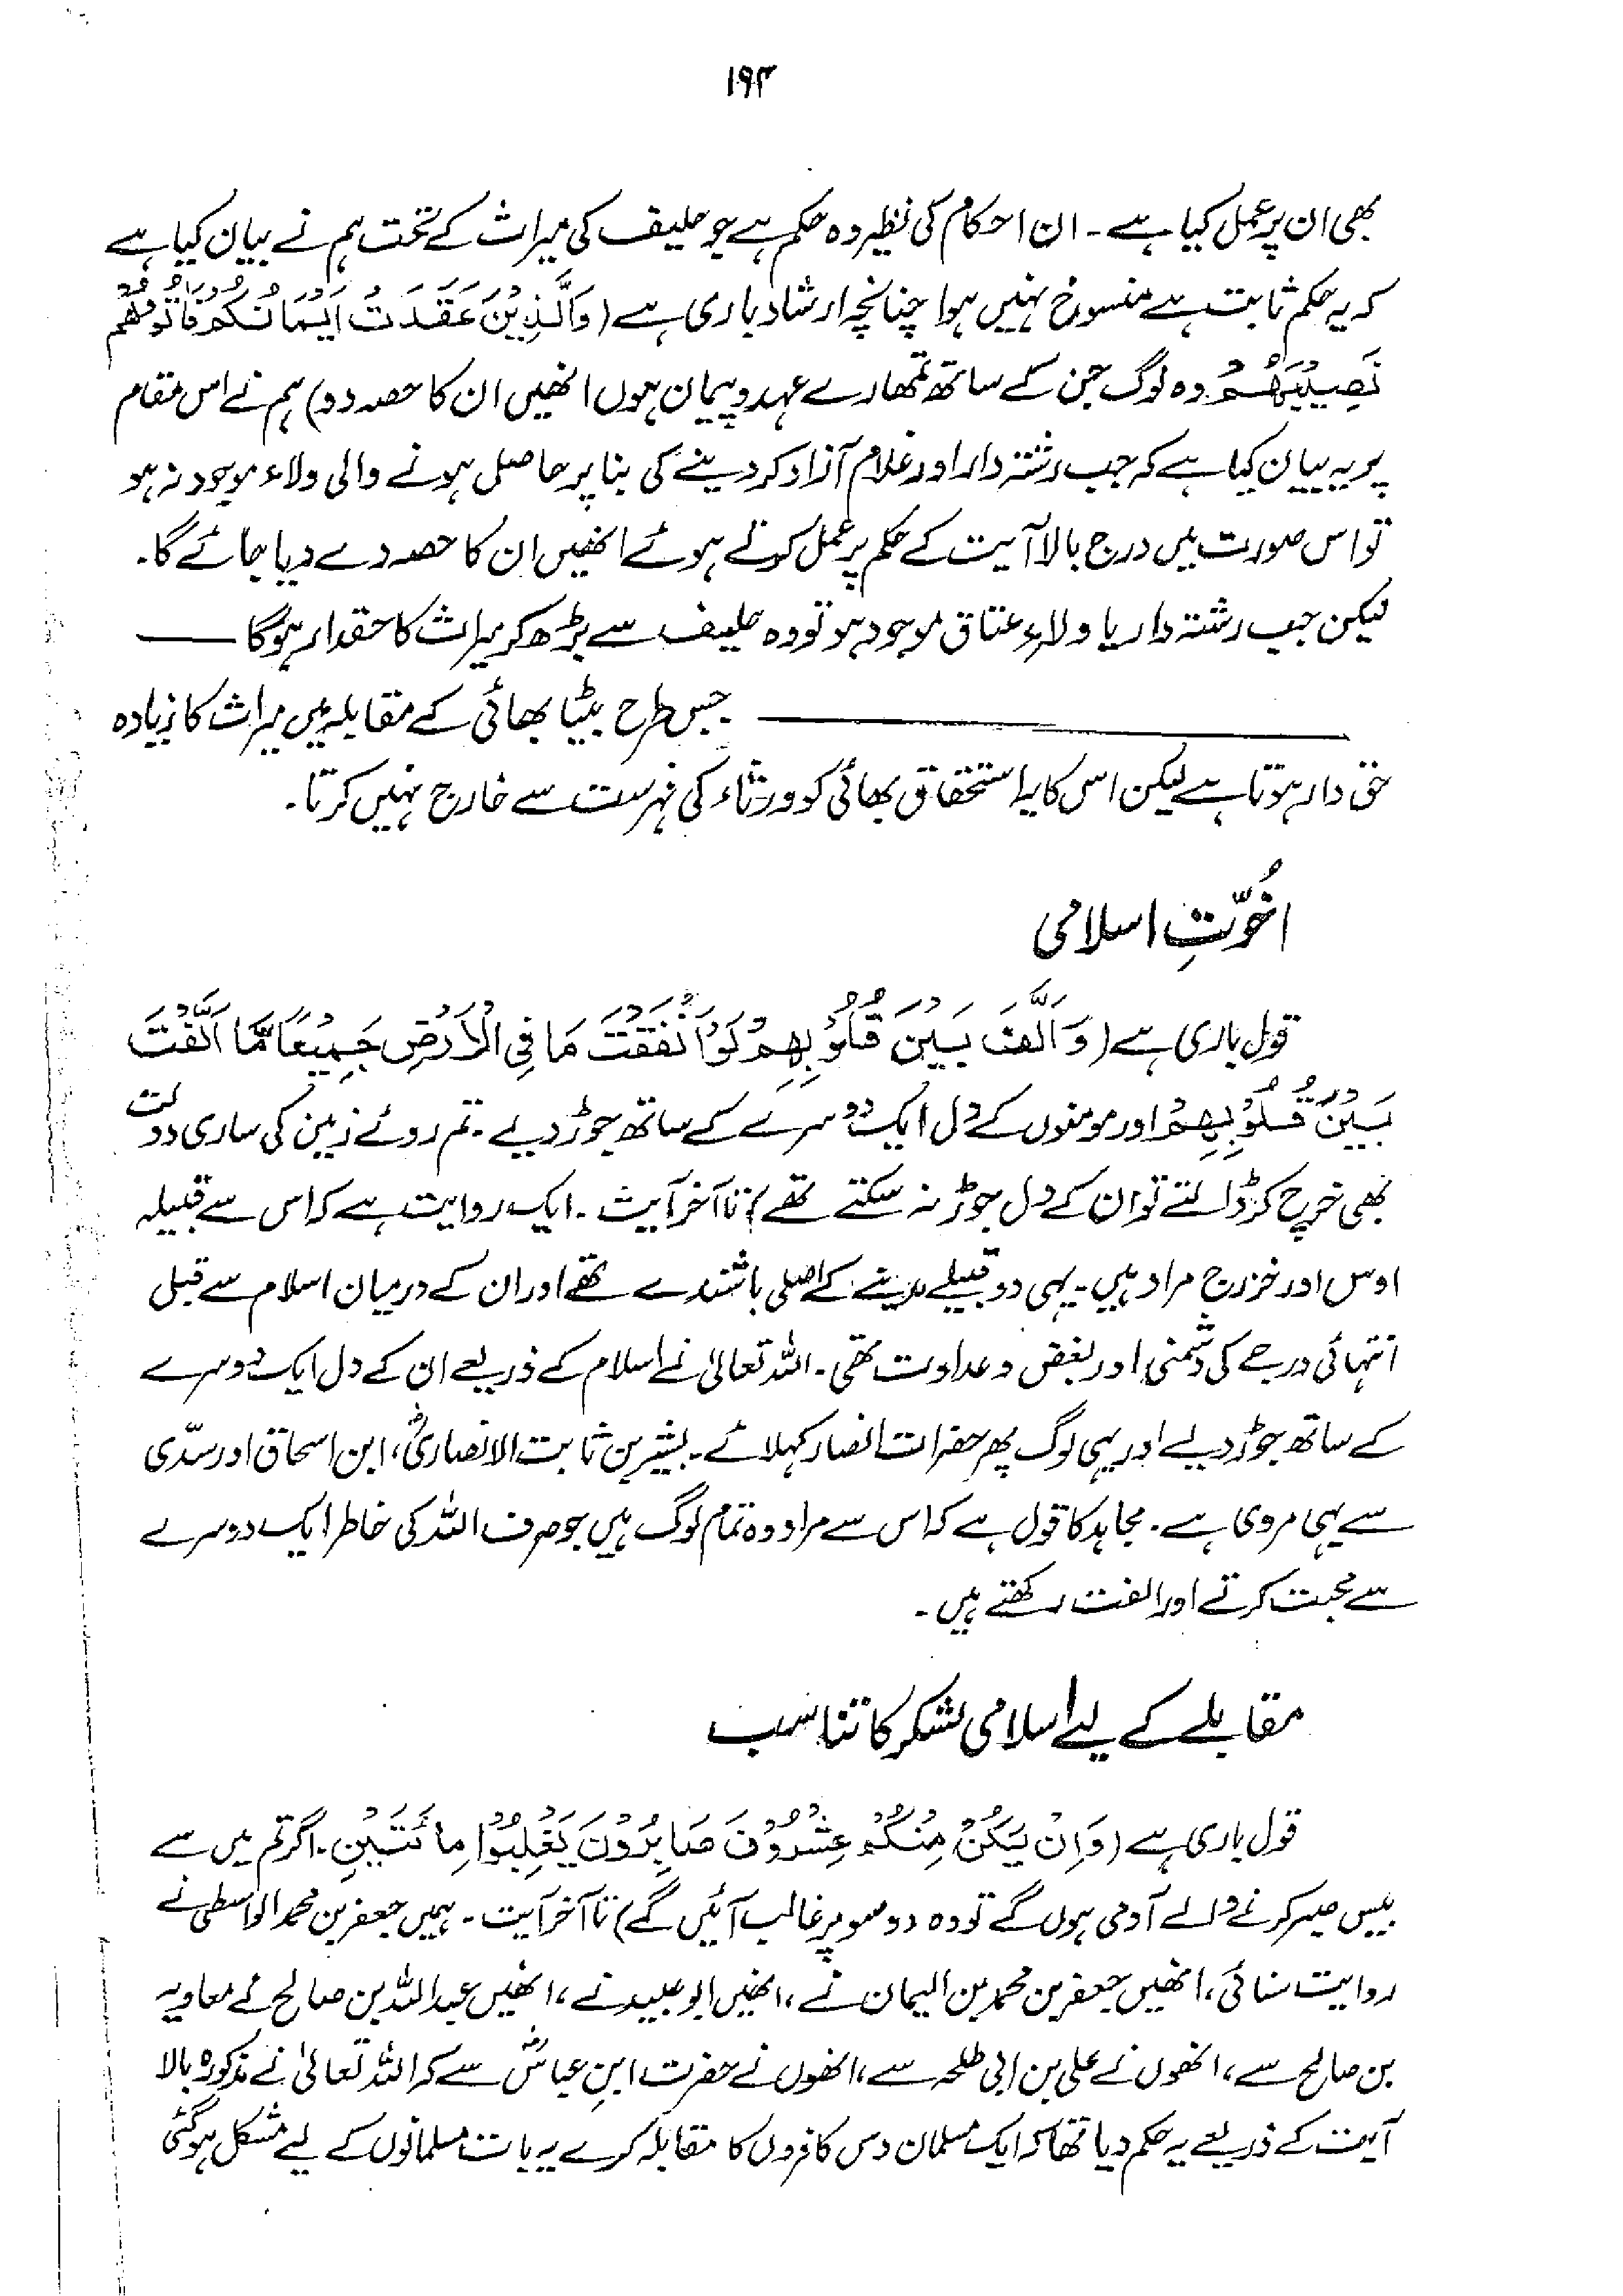 ۱۹۴
بھی ان پر عمل کیا ہے ۔ ان احکام کی نظیر وہ حکم ہے جو حلیف کی میراث کے تحت ہم نے بیان کیا ہے
کہ یہ حکم ثابت ہے منسوخ نہیں ہوا چنانچہ ارشاد باری ہے (وَالَّذِيْنَ عَقَدَتْ اَيْمَانُكُمْ فَاٰتُوْهُمْ
نَصِيْبَهُمْ وہ لوگ جن کے ساتھ تمھارے عہد و پیمان ہوں انھیں ان کا حصہ دو) ہم نے اس مقام
پر یہ بیان کیا ہے کہ جب رشتہ دار اور غلام آزاد کر دینے کی بنا پر حاصل ہونے والی ولاء موجود نہ ہو
تو اس صورت میں درج بالا آیت کے حکم پر عمل کرتے ہوئے انھیں ان کا حصہ دے دیا جائے گا۔
لیکن جب رشتہ دار یا ولاء عتاق موجود ہو تو وہ حلیف سے بڑھ کر میراث کا حقدار ہوگا ——
—————— جس طرح بیٹا بھائی کے مقابلہ میں میراث کا زیادہ
حق دار ہوتا ہے لیکن اس کا یہ استحقاق بھائی کو ورثاء کی فہرست سے خارج نہیں کرتا۔
اُخُوّتِ اسلامی
قول باری ہے (وَاَلَّفَ بَيْنَ قُلُوْبِهِمْ لَوْ اَنْفَقْتَ مَا فِي الْاَرْضِ جَمِيْعًا مَّا اَلَّفْتَ
بَيْنَ قُلُوْبِهِمْ اور مومنوں کے دل ایک دوسرے کے ساتھ جوڑ دیے ۔ تم روئے زمین کی ساری دولت
بھی خرچ کر ڈالتے تو ان کے دل جوڑ نہ سکتے تھے) تا آخر آیت ۔ ایک روایت ہے کہ اس سے قبیلہ
اوس اور خزرج مراد ہیں ۔ یہی دو قبیلے مدینے کے اصلی باشندے تھے اور ان کے درمیان اسلام سے قبل
انتہائی درجے کی دشمنی اور بغض و عداوت تھی ۔ اللہ تعالیٰ نے اسلام کے ذریعے ان کے دل ایک دوسرے
کے ساتھ جوڑ دیے اور یہی لوگ پھر حضرات انصار کہلائے ۔ بشیر بن ثابت الانصاریؓ، ابن اسحاق اور سدّی
سے یہی مروی ہے ۔ مجاہد کا قول ہے کہ اس سے مراد وہ تمام لوگ ہیں جو صرف اللہ کی خاطر ایک دوسرے
سے محبت کرتے اور الفت رکھتے ہیں ۔
مقابلے کے لیے اسلامی لشکر کا تناسب
قول باری ہے (وَاِنْ يَكُنْ مِنْكُمْ عِشْرُوْنَ صَابِرُوْنَ يَغْلِبُوْا مِائَتَيْنِ ۔ اگر تم میں سے
بیس صبر کرنے والے آدمی ہوں گے تو وہ دو سو پر غالب آئیں گے) تا آخر آیت ۔ ہمیں جعفر بن محمد الواسطی نے
روایت سنائی، انھیں جعفر بن محمد بن الیمان نے، انھیں ابوعبید نے، انھیں عبداللہ بن صالح نے معاویہ
بن صالح سے، انھوں نے علی بن ابی طلحہ سے، انھوں نے حضرت ابنِ عباسؓ سے کہ اللہ تعالیٰ نے مذکورہ بالا
آیت کے ذریعے یہ حکم دیا تھا کہ ایک مسلمان دس کافروں کا مقابلہ کرے یہ بات مسلمانوں کے لیے مشکل ہوگئی